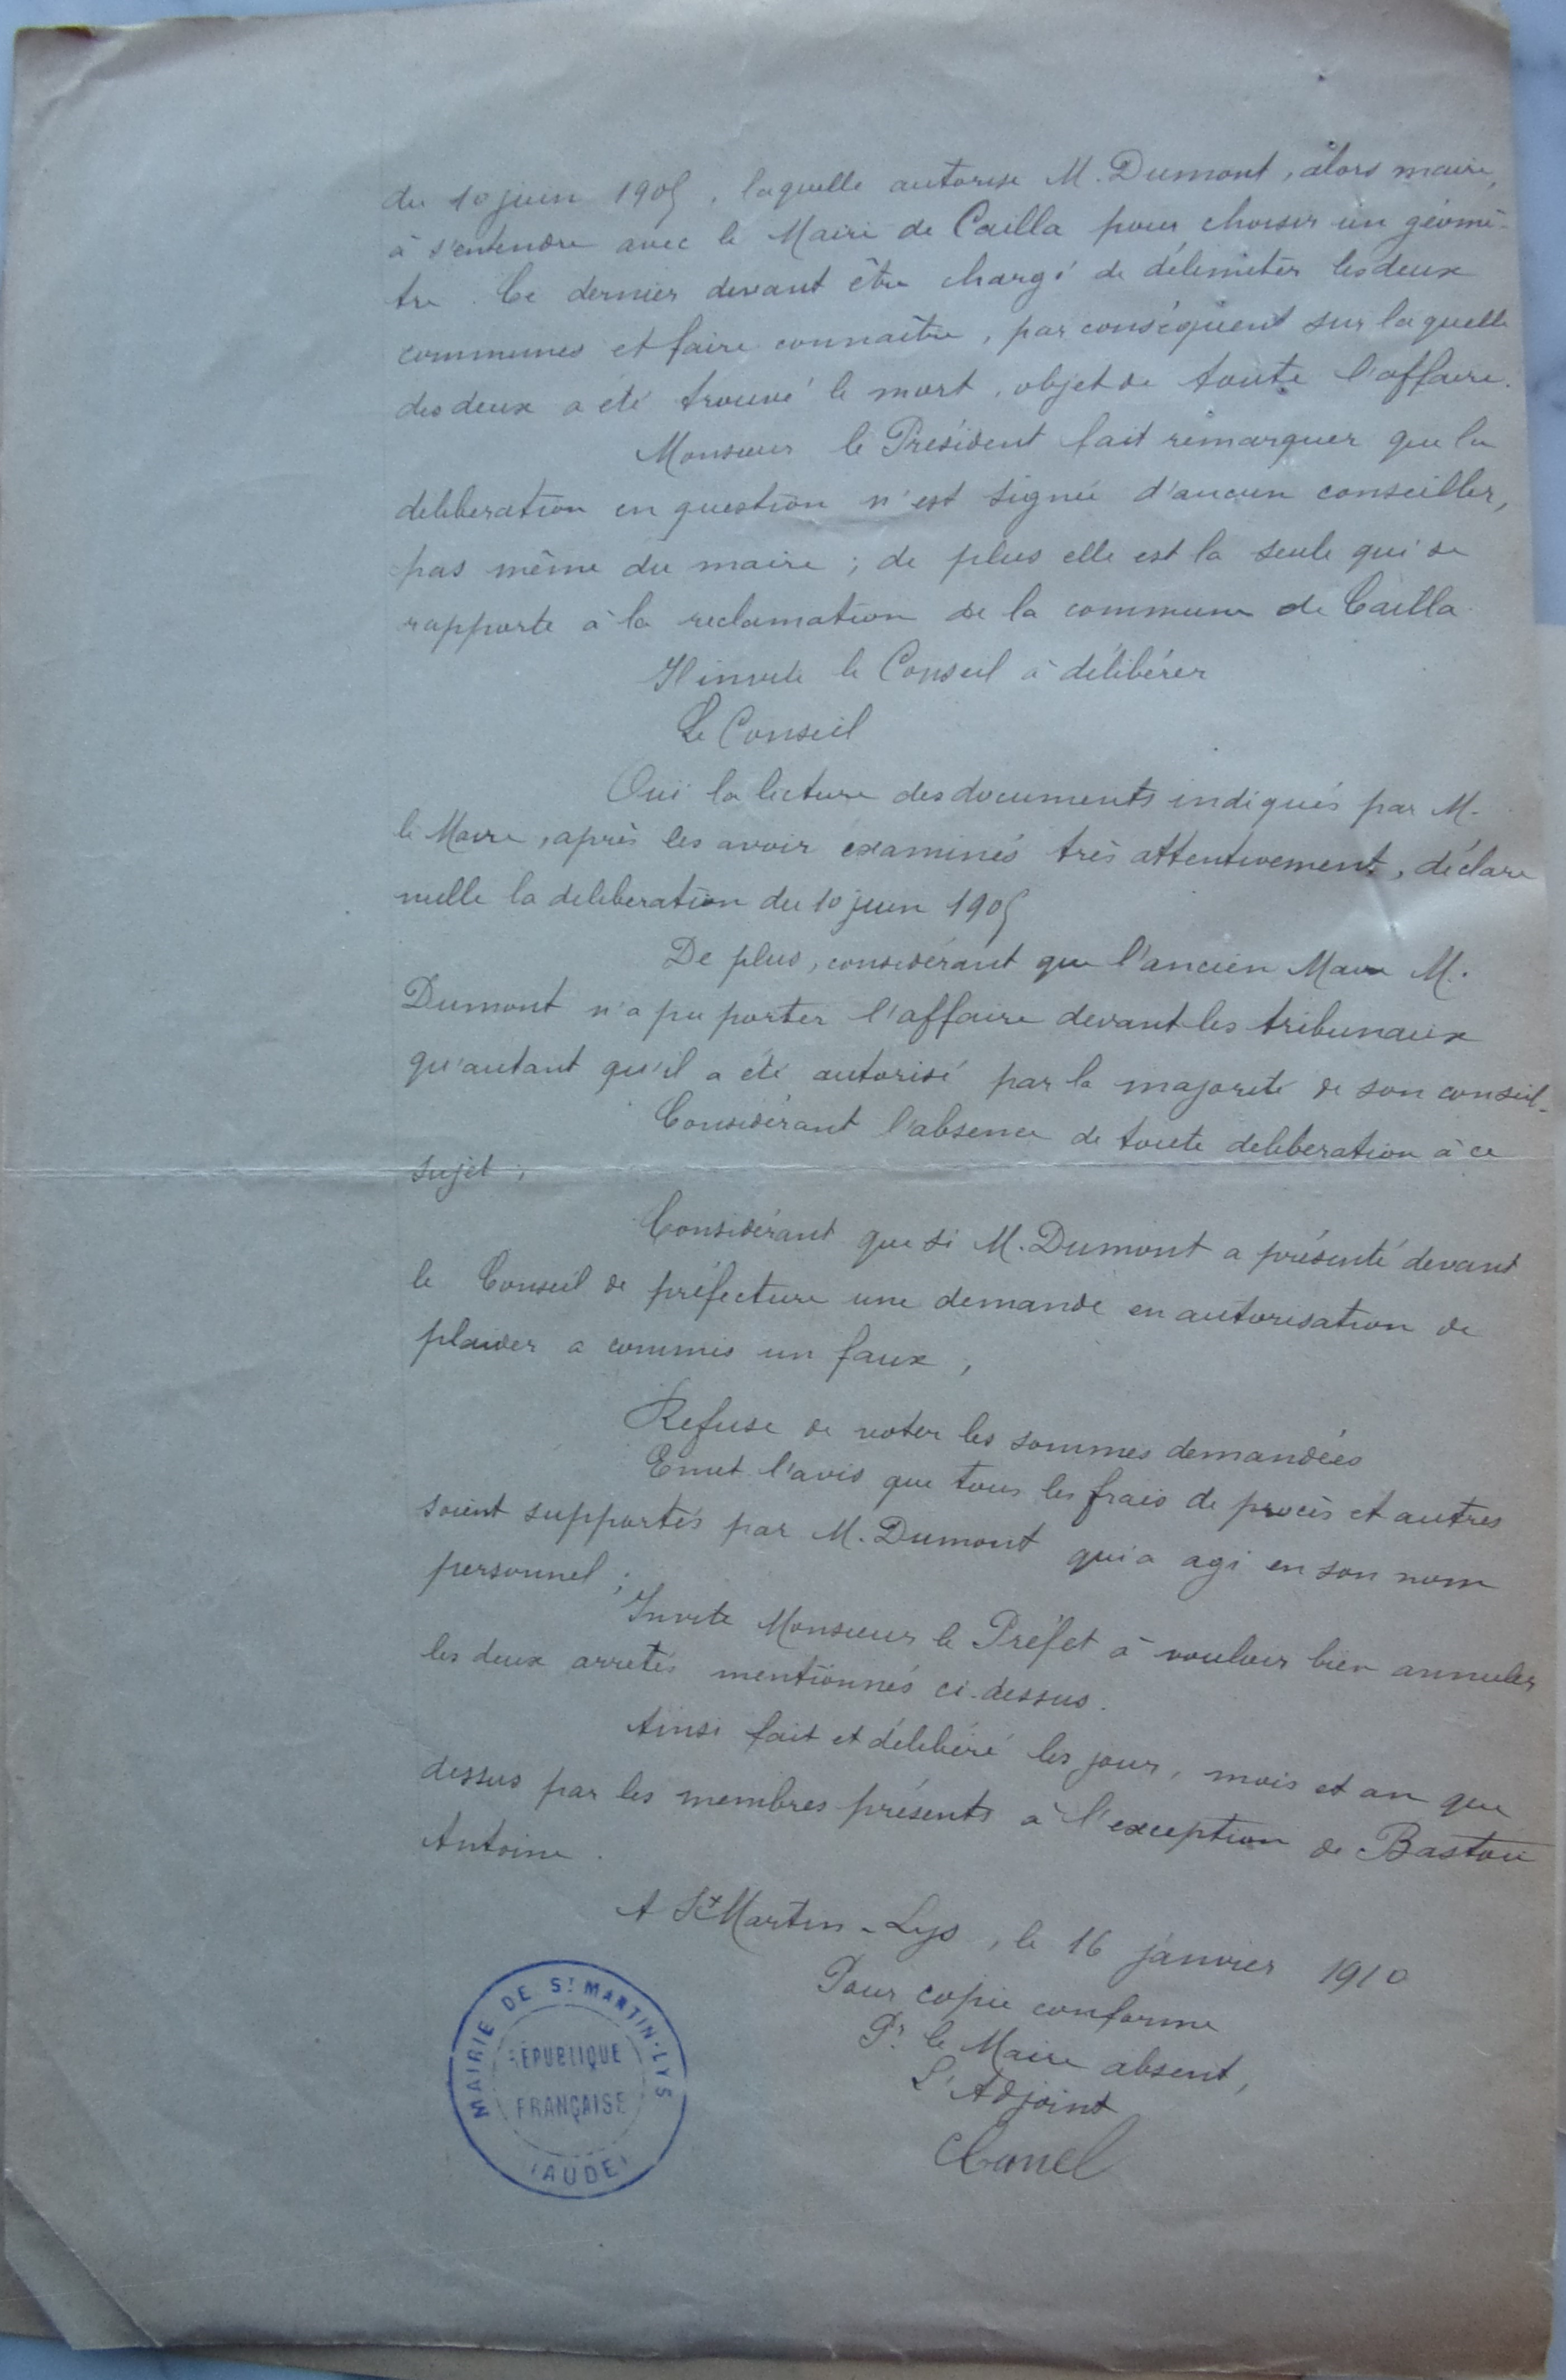 du 10 juin 1905, laquelle autorise M. Dumont, alors maire,
à s'entendre avec le Maire de Cailla pour choisir un géomè-
tre. Ce dernier devant être chargé de délimiter les deux
communes et faire connaître, par conséquent sur laquelle
des deux a été trouvé le mort, objet de toute l'affaire.
Monsieur le Président fait remarquer que la
deliberation en question n'est signée d'aucun conseiller,
pas même du maire ; de plus elle est la seule qui se
rapporte à la reclamation de la commune de Cailla
Il invite le Conseil à délibérer
Le Conseil
Oui la lecture des documents indiqués par M.
le Maire, après les avoir examinés très attentivement, déclare
nulle la deliberation du 10 juin 1905
De plus, considérant que l'ancien Maire M.
Dumont n'a pu porter l'affaire devant les tribunaux
qu'autant qu'il a été autorisé par la majorité de son conseil.
Considérant l'absence de toute deliberation à ce
sujet ;
Considérant que si M. Dumont a présenté devant
le Conseil de préfecture une demande en autorisation de
plaider a commis un faux ;
Refuse de voter les sommes demandées
Emet l'avis que tous les frais de procès et autres
soient supportés par M. Dumont qui a agi en son nom
personnel ;
Invite Monsieur le Préfet à vouloir bien annuler
les deux arretés mentionnés ci-dessus.
Ainsi fait et délibéré les jour, mois et an que
dessus par les membres présents à l'exception de Bastou
Antoine.
A St Martin-Lys, le 16 janvier 1910
Pour copie conforme
Pr le Maire absent,
L'Adjoint
MAIRIE DE ST MARTIN-LYS
RÉPUBLIQUE
FRANÇAISE
(AUDE)